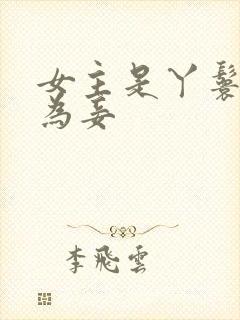 女主是丫鬟
為妾
李飛雲